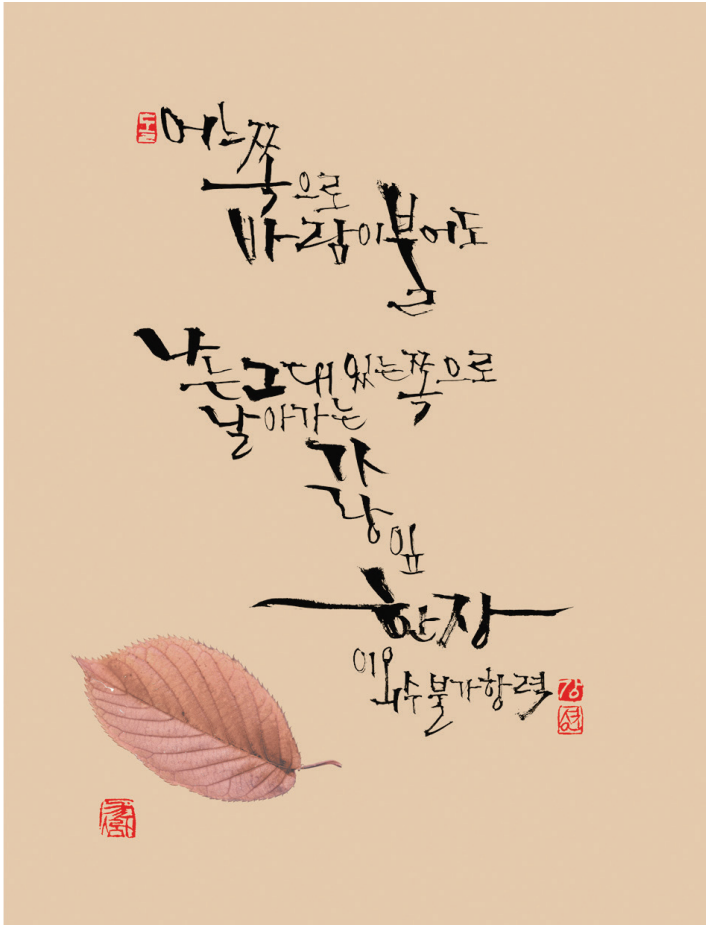 어느 쪽으로
바람이 불어도
나는 그대 있는 쪽으로
날아가는
가랑
잎
한 장
이외수 불가항력